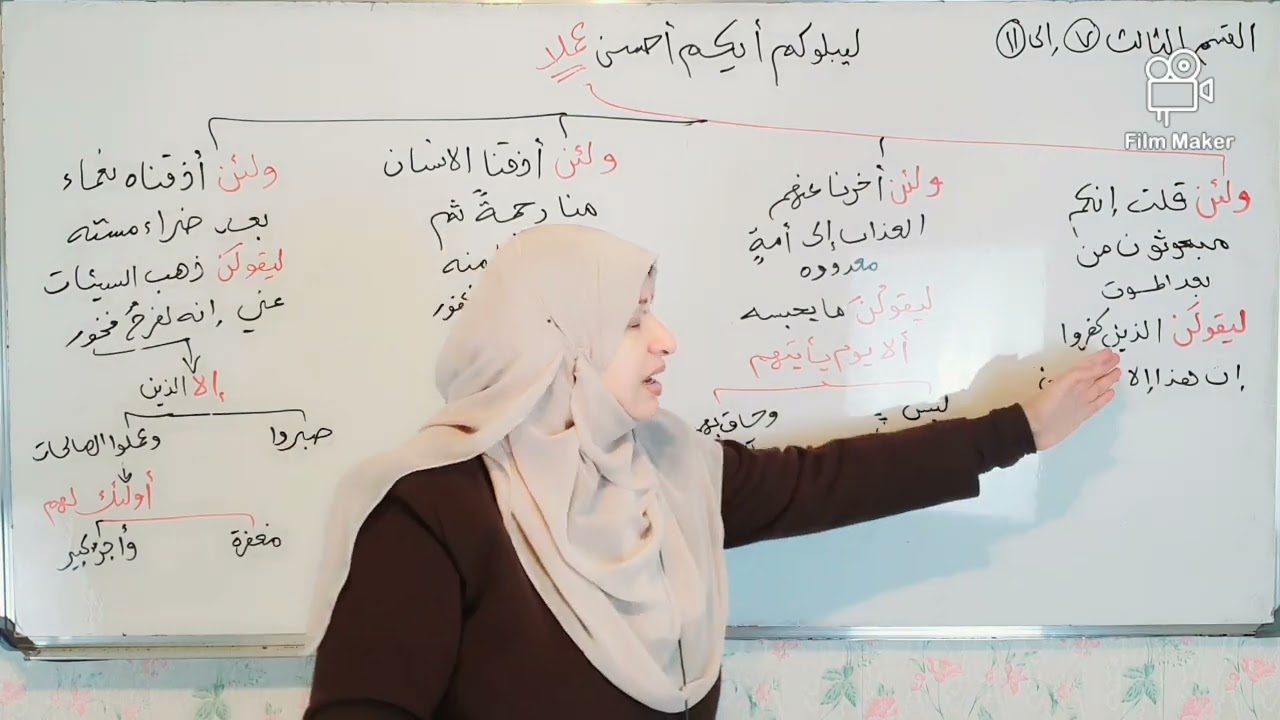 القسم الثالث ٧ إلى ١١
ليبلوكم أيكم أحسن عملا
Film Maker
ولئن قلت إنكم
مبعوثون من
بعد الموت
ليقولَن الذين كفروا
إن هذا إلا
ولئن أخرنا عنهم
العذاب إلى أمةٍ
معدوده
ليقولُن ما يحبسه
ألا يوم يأيتهم
ليس
وحاق بهم
ولئن أذقنا الانسان
منا رحمةً ثم
منه
ولئن أذقناه نعماء
بعد ضراء مسته
ليقولَن ذهب السيئات
عني إنه لفرحٌ فخور
إلا الذين
صبروا
وعملوا الصالحات
أولئك لهم
مغفرة
وأجرٌ كبير